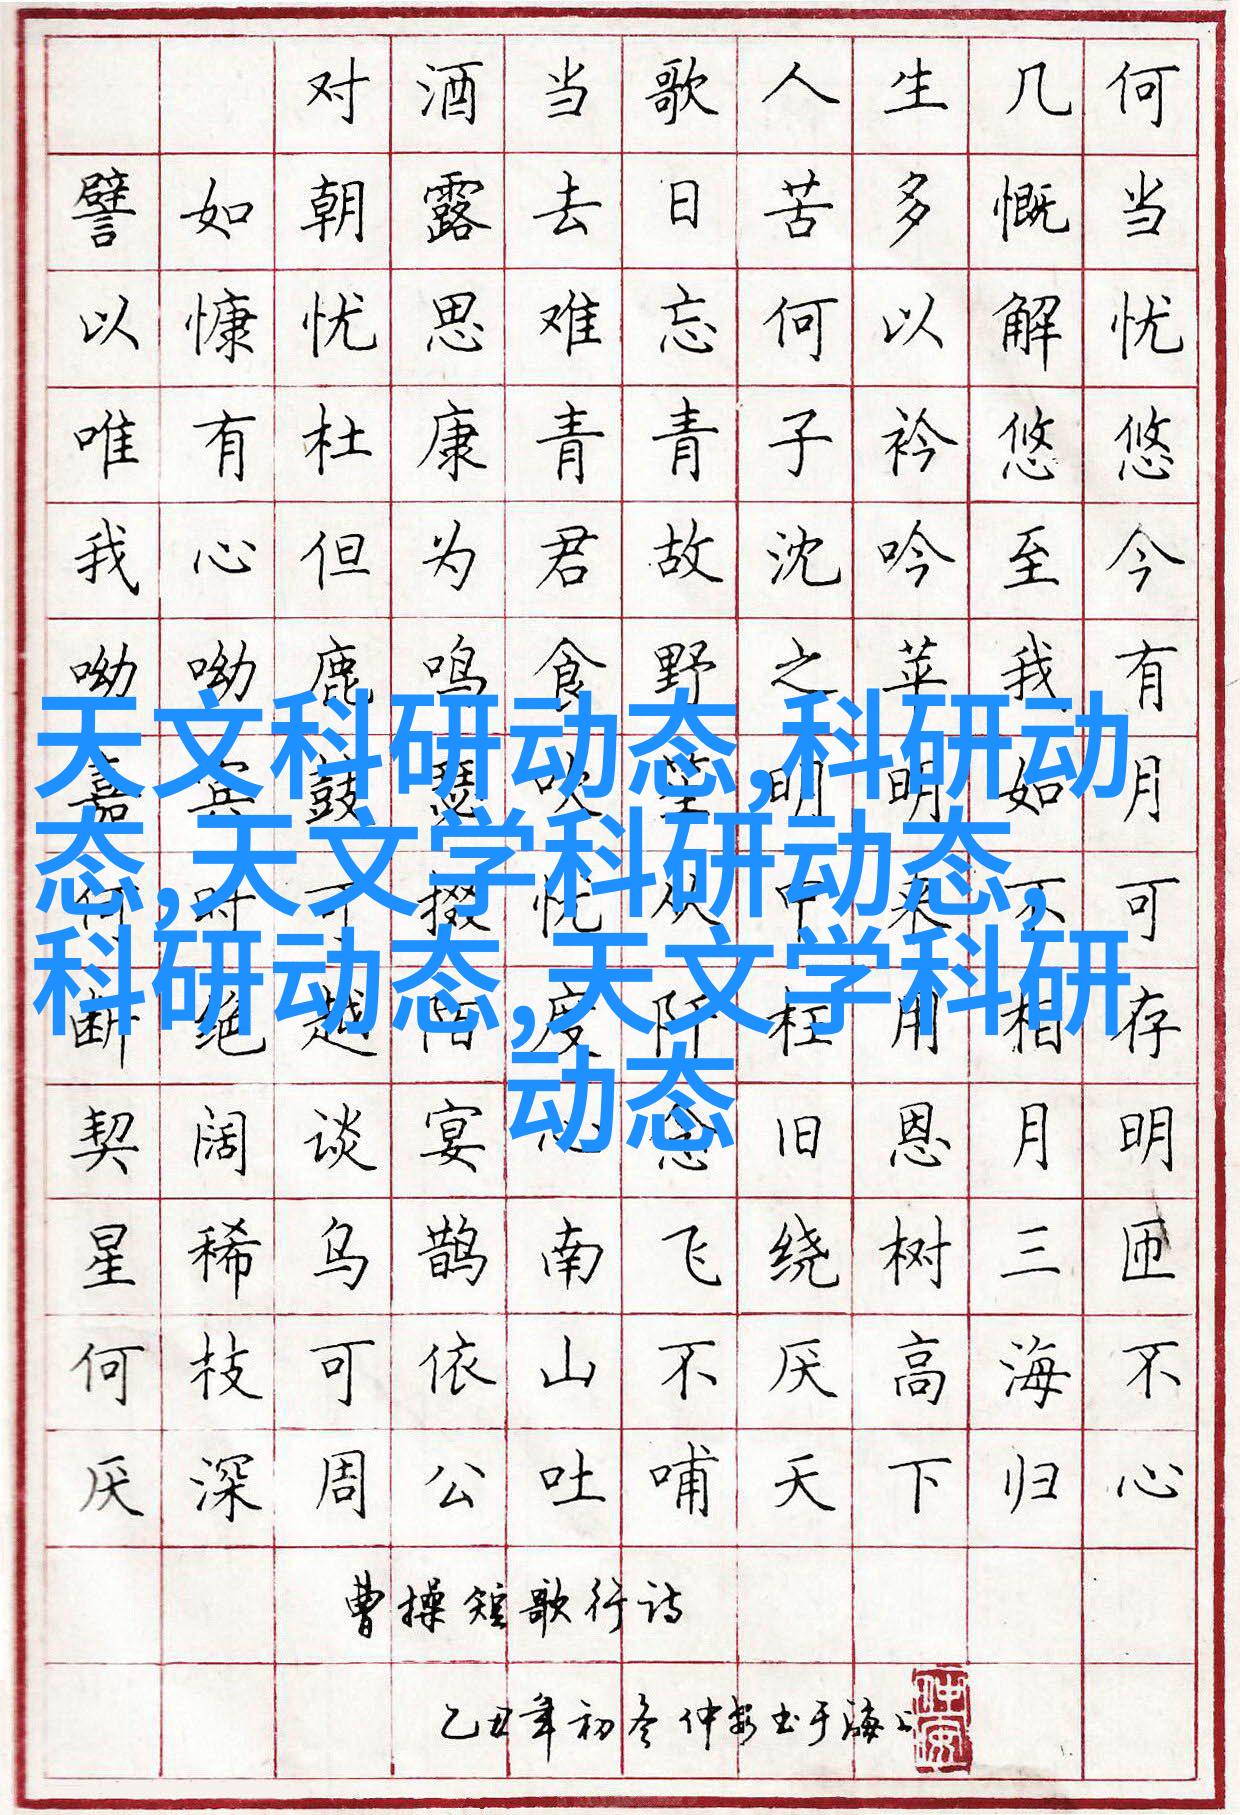 对酒当歌人生几何
譬如朝露去日苦多慨当
以慷忧思难忘何以解忧
唯有杜康青青子衿悠悠
我心但为君故沈吟至今
呦呦鹿鸣食野之苹我有
天文科研动态,科研动
嘉宾鼓瑟吹笙明明如月
态,天文学科研动态,
何时可掇忧从中来不可
科研动态,天文学科研
断绝越陌度阡枉用相存
动态
契阔谈宴心念旧恩月明
星稀乌鹊南飞绕树三匝
何枝可依山不厌高海不
厌深周公吐哺天下归心
曹操短歌行诗
乙丑年初冬仲安书于海上
仲安